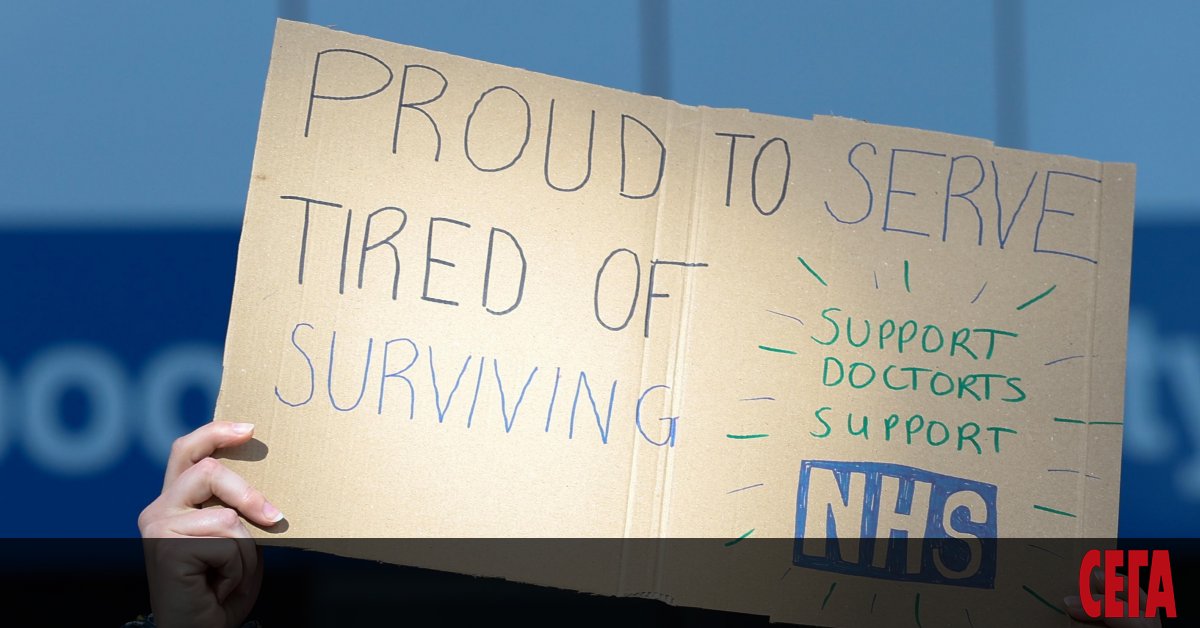 PROUD TO SERVE
TIRED OF
SURVIVING
SUPPORT
DOCTORTS
SUPPORT
NHS
СЕГА